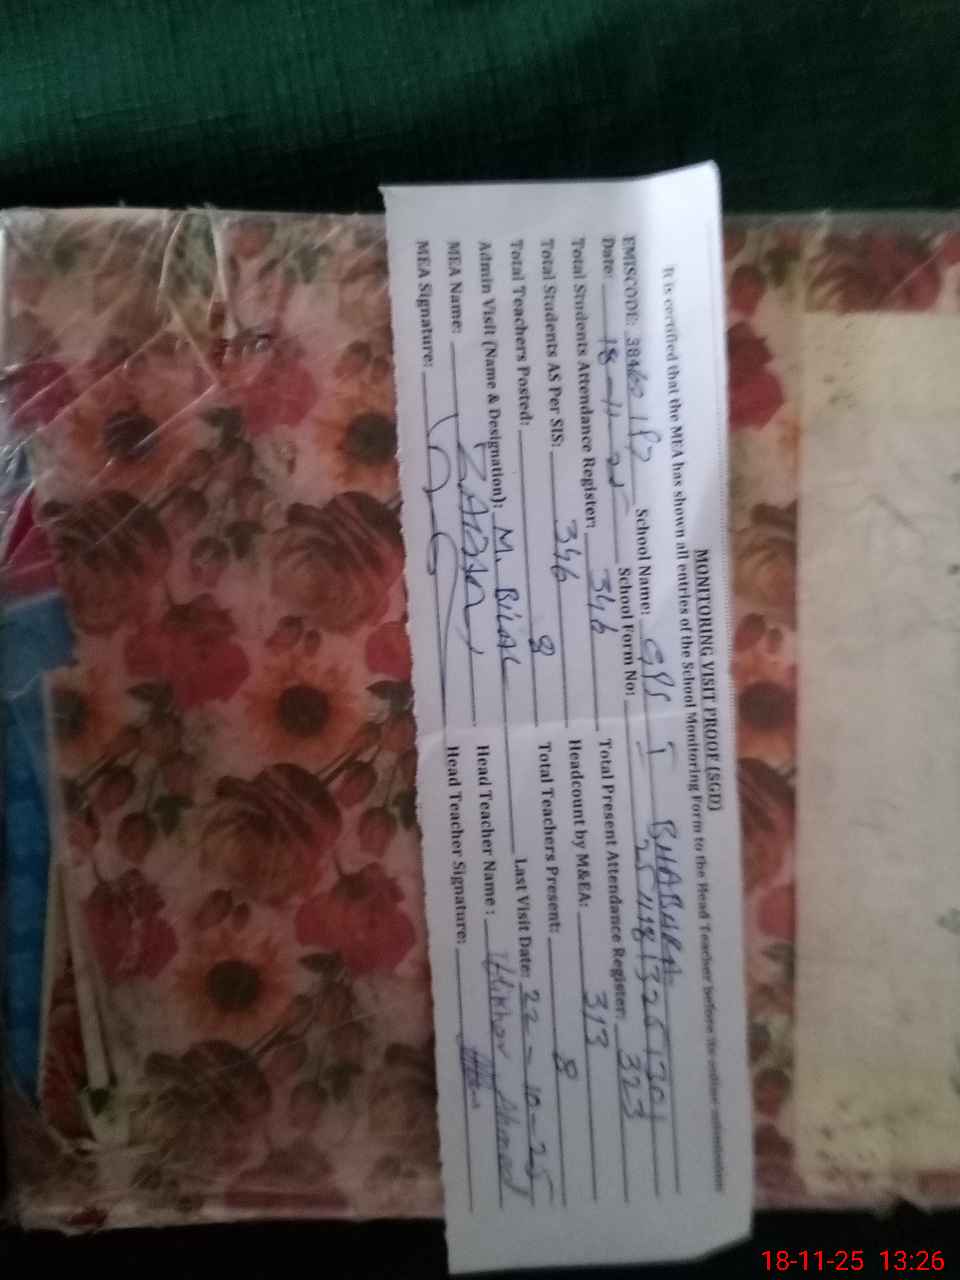 MONITORING VISIT PROOF (SGD)
It is certified that the MEA has shown all entries of the School Monitoring Form to the Head Teacher before its online submission
EMISCODE: 38460187 School Name: GPS I BHABHRA
Date: 18-11-25 School Form No: 2541813261301
Total Students Attendance Register: 346 Total Present Attendance Register: 323
Total Students AS Per SIS: 346 Headcount by M&EA: 313
Total Teachers Posted: 8 Total Teachers Present: 8
Admin Visit (Name & Designation): M. Bilal Last Visit Date: 22-10-25
MEA Name: Head Teacher Name: Iftikhar Ahmed
MEA Signature: Head Teacher Signature:
18-11-25 13:26